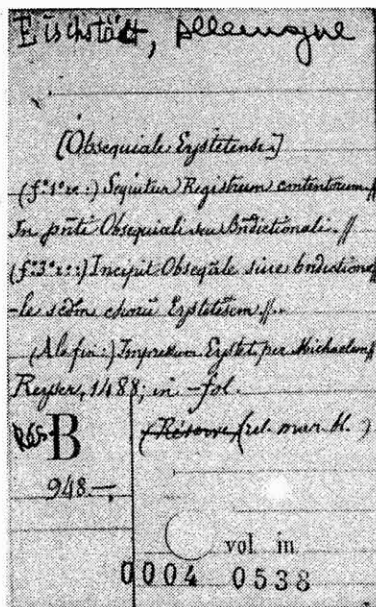 Eischstätt, Allemagne
[Obsequiale Eystetense]
(f.° 1 r.°:) Sequitur Registrum contentorum //
In pñti Obsequiali seu Bndictionali. //
(f.° 3 r.°:) Incipit Obseqüale sive bndictiona
-le scdm chorü Eystetësem //..
(A la fin:) Impressum Eystet, per Michaelem //
Reyser, 1488; in-fol.
Rés. B (Réserve) (rel. mar. bl.)
948.—
vol in
0004 0538